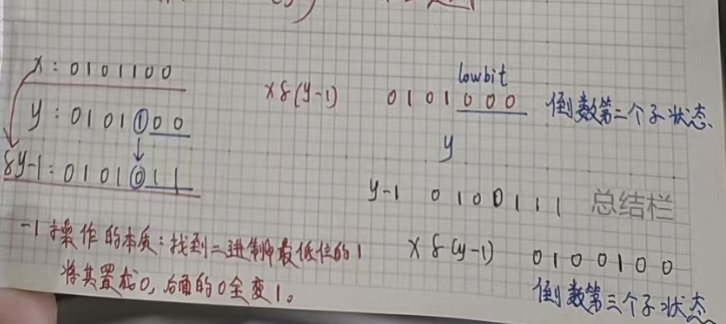 x : 0101100
y : 0101100
&y-1 : 0101011
-1操作的本质：找到二进制最低位的1
将其置成0，后面的0全变1。
lowbit
x&(y-1) 0101000 倒数第二个子状态
y
y-1 0100111 总结栏
x&(y-1) 0100100
倒数第三个子状态